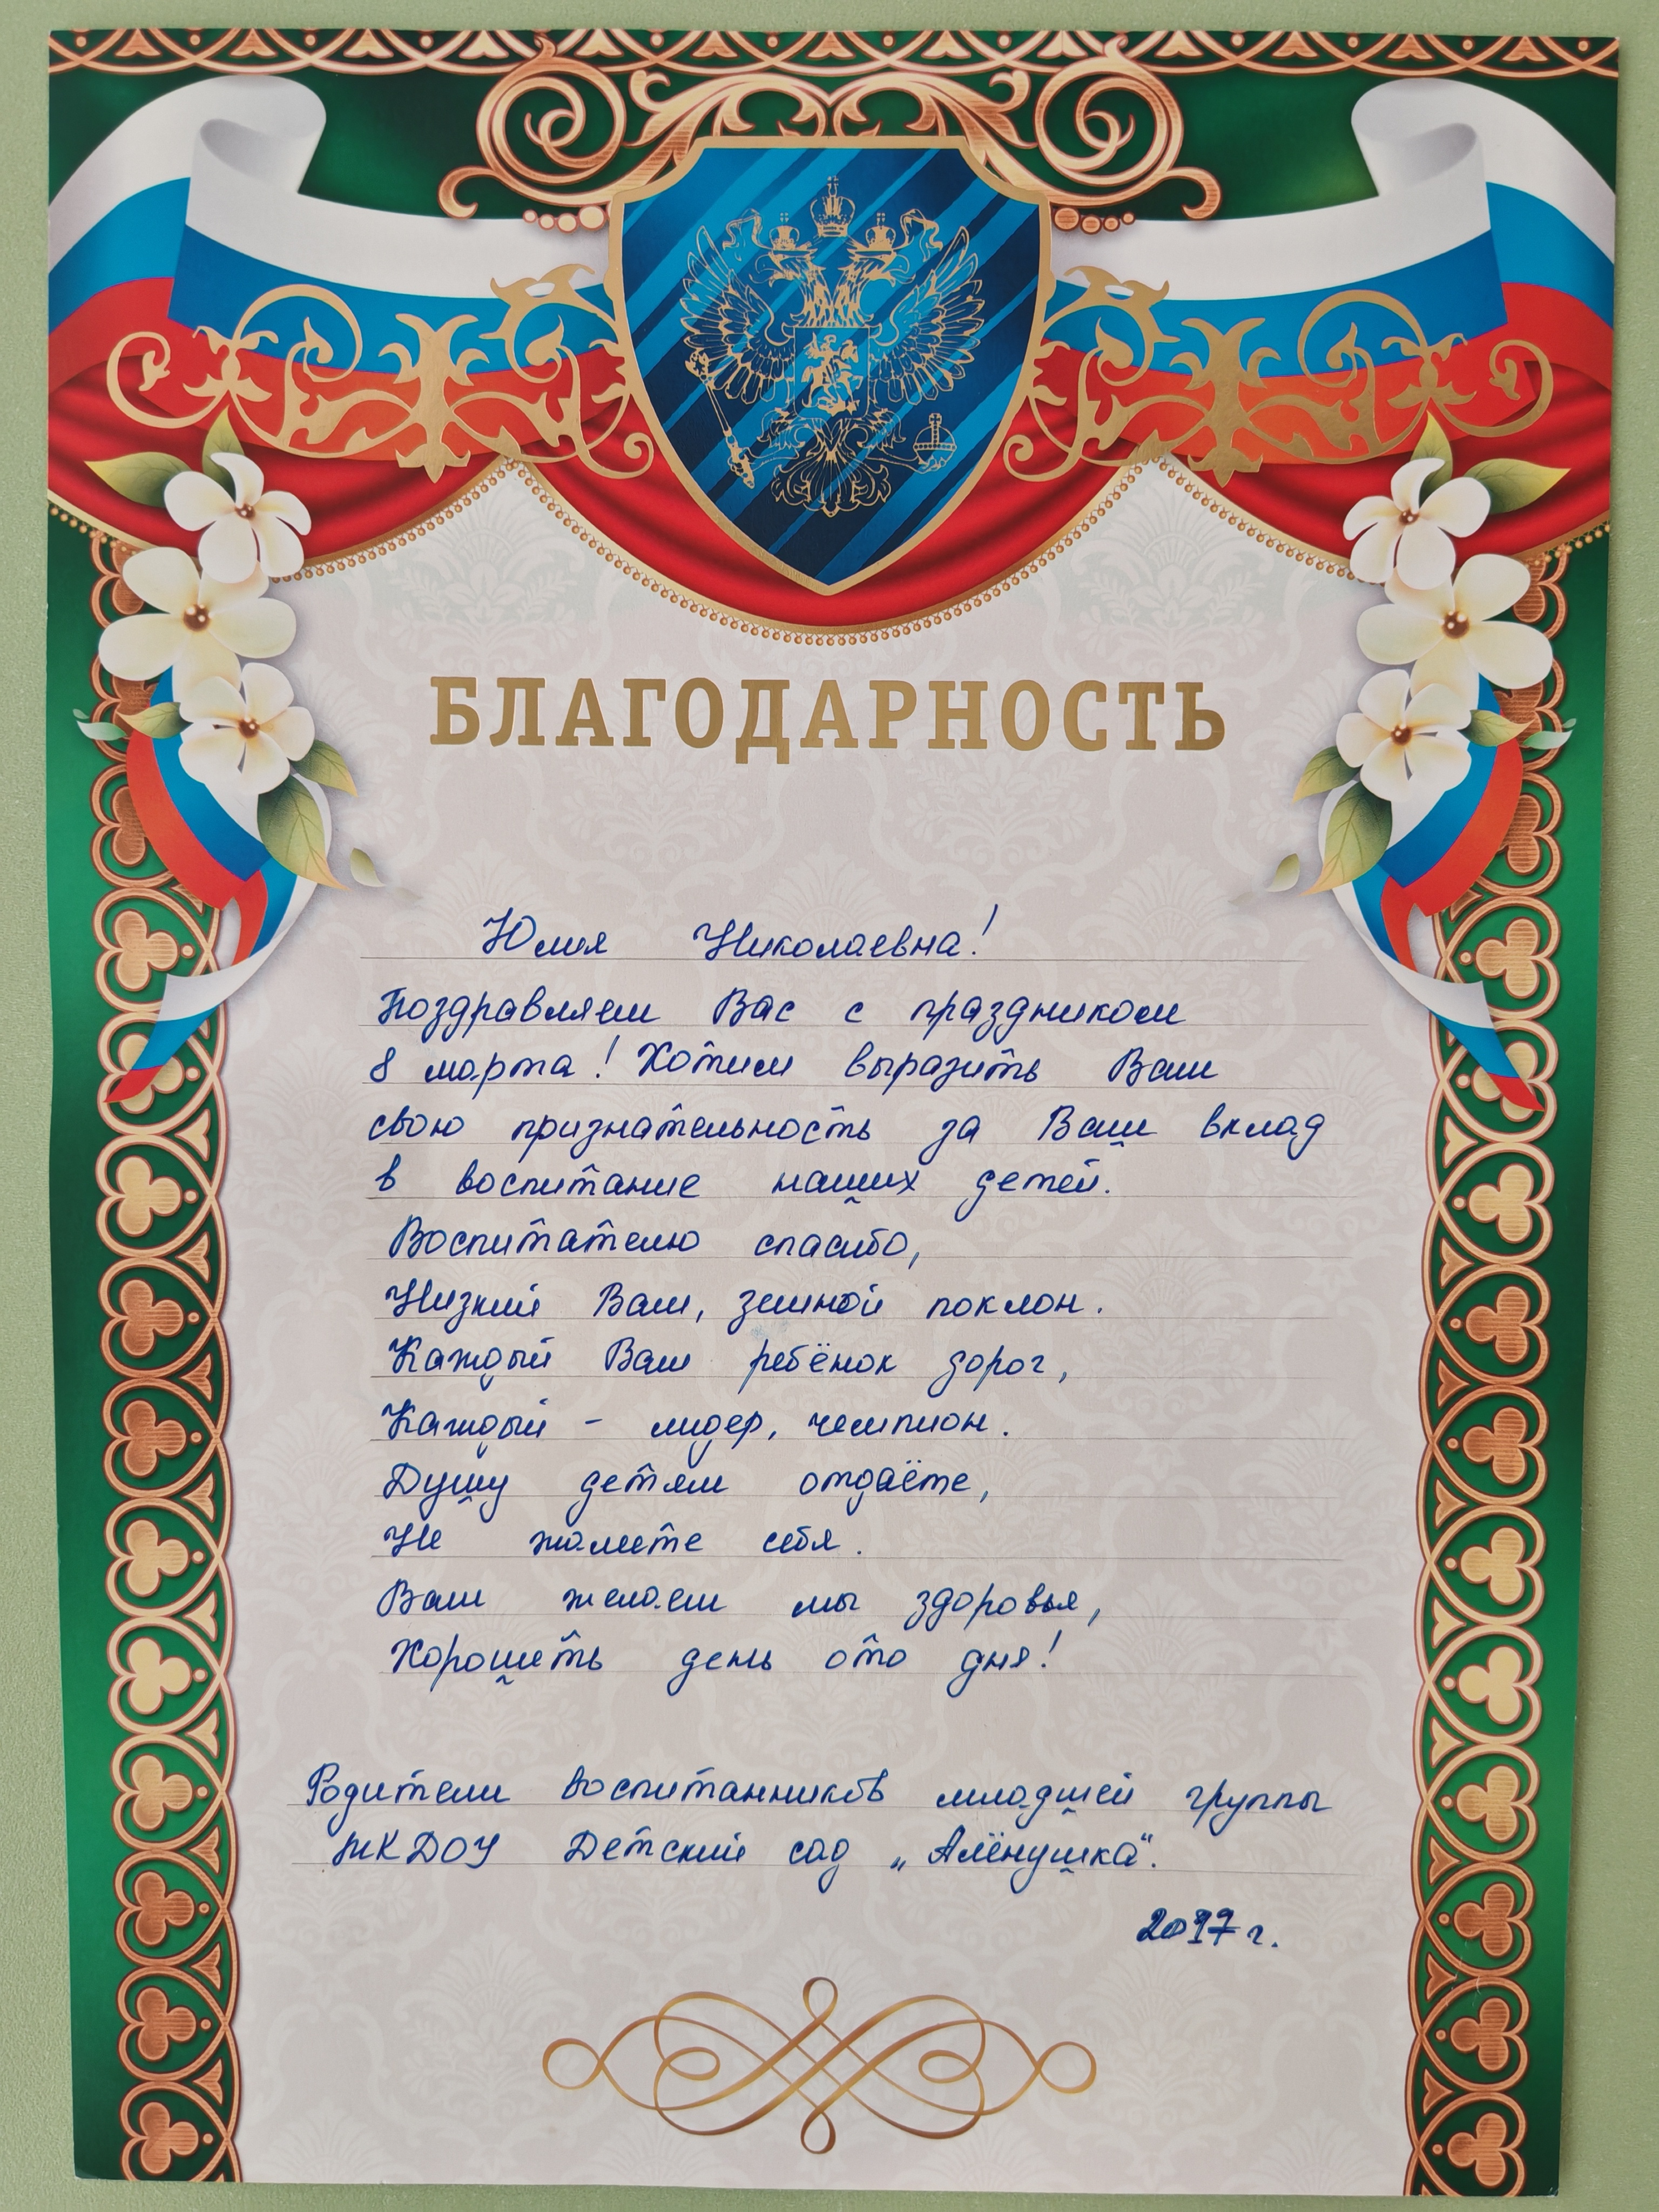 БЛАГОДАРНОСТЬ
Юлия Николаевна!
Поздравляем Вас с праздником
8 марта! Хотим выразить Вам
свою признательность за Ваш вклад
в воспитание наших детей.
Воспитателю спасибо,
Низкий Вам, земной поклон.
Каждый Вам ребёнок дорог,
Каждый - лидер, чемпион.
Душу детям отдаёте,
Не жалеете себя.
Вам желаем мы здоровья,
Хорошеть день ото дня!
Родители воспитанников младшей группы
МКДОУ Детский сад „Алёнушка“.
2017 г.